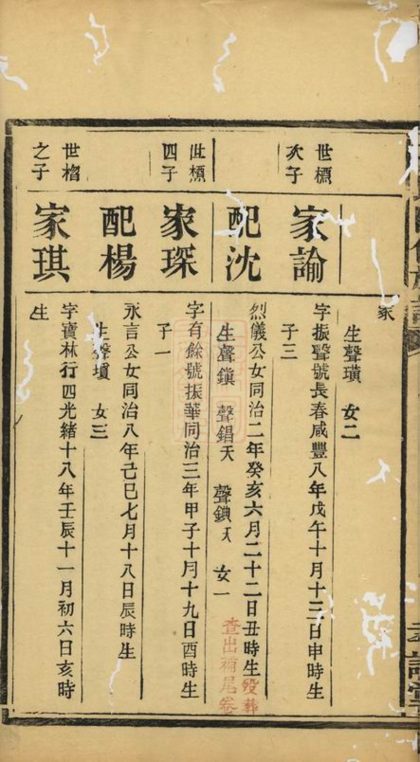 家
生聲璜 女二
世標次子
家諭
字振聲號長春咸豐八年戊午十月十二日申時生
子三
配沈
烈儀公女同治二年癸亥六月二十二日丑時生 歿葬
查出補尾卷
生聲鎭 聲錩夭 聲鎖夭 女一
世標四子
家琛
字有餘號振華同治三年甲子十月十九日酉時生
子一
配楊
永言公女同治八年己巳七月十八日辰時生
生聲墳 女三
世榴之子
家琪
字寶林行四光緒十八年壬辰十一月初六日亥時
生